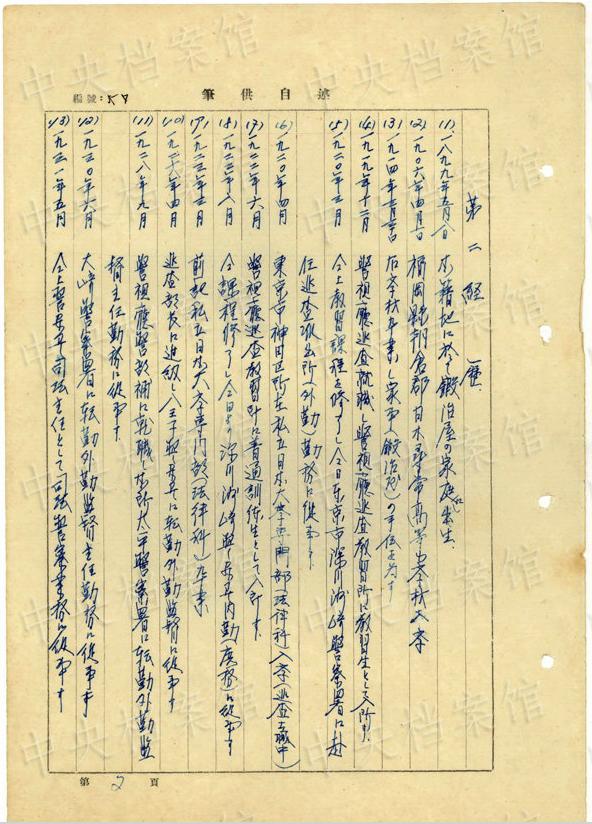 述自供筆
編號:
第二 経歴
(1) 一八九九年五月八日 本籍地に於て鍛冶屋の家庭に出生.
(2) 一九〇六年四月一日 福岡県朝倉郡甘木尋常高等小学校入学
(3) 一九一四年三月 右学校卒業し家事(鍛冶屋)の手伝を為す
(4) 一九一九年十二月 警視庁巡査就職し警視庁巡査教習所に教習生として入所す.
(5) 一九二〇年三月 仝上教習課程を修了し仝日東京市深川洲崎警察署に赴
任巡査派出所外勤勤務に従事す.
(6) 一九二〇年四月 東京市神田区所在私立日本大学専門部(法律科)入学(巡査在職中)
(7) 一九二二年六月 警視庁巡査教習所に普通訓練生として入所す.
(8) 一九二二年八月 仝課程修了し仝日深川洲崎警察署内勤(庶務)に従事す
(9) 一九二三年三月 前記私立日本大学専門部(法律科)卒業
(10) 一九二六年四月 巡査部長に進級し八王子警察署に転勤外勤監督に従事す.
(11) 一九二八年九月 警視庁警部補に就職し本所太平警察署に転勤外勤監
督主任勤務に従事す.
(12) 一九三〇年六月 大崎警察署に転勤外勤監督主任勤務に従事す
(13) 一九三一年五月 仝上警察署司法主任として司法警察業務に従事す
第 2 頁
中央档案馆
中央档案馆
中央档案馆
中央档案馆